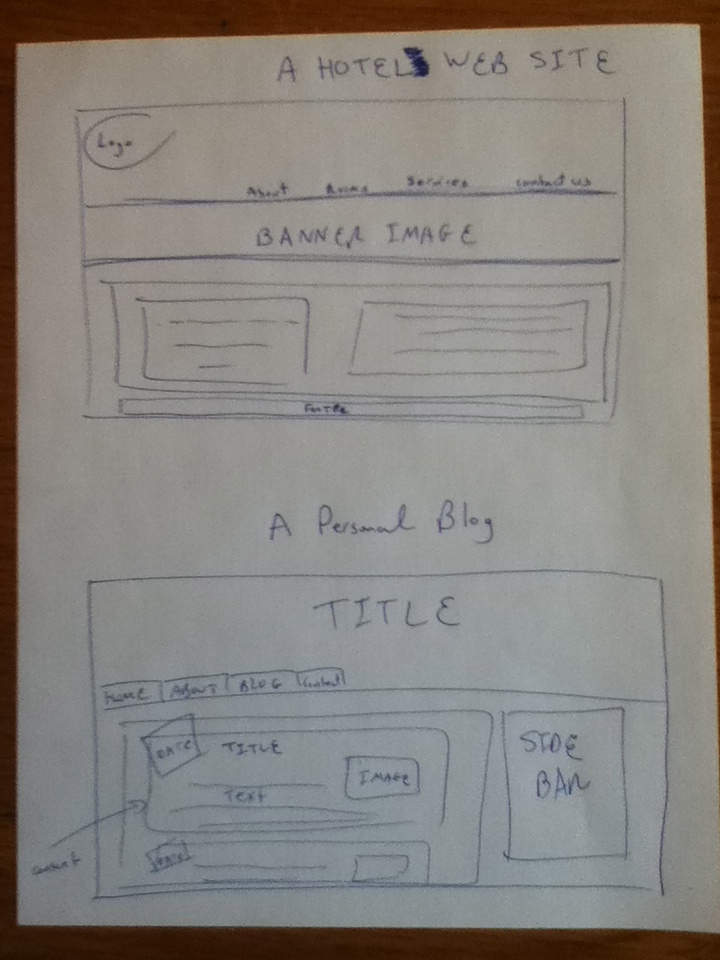 A HOTEL WEB SITE
Logo
About Rooms Services contact us
BANNER IMAGE
FOOTER
A Personal Blog
TITLE
HOME ABOUT BLOG Contact
DATE TITLE
IMAGE
Text
SIDE
BAR
content
DATE